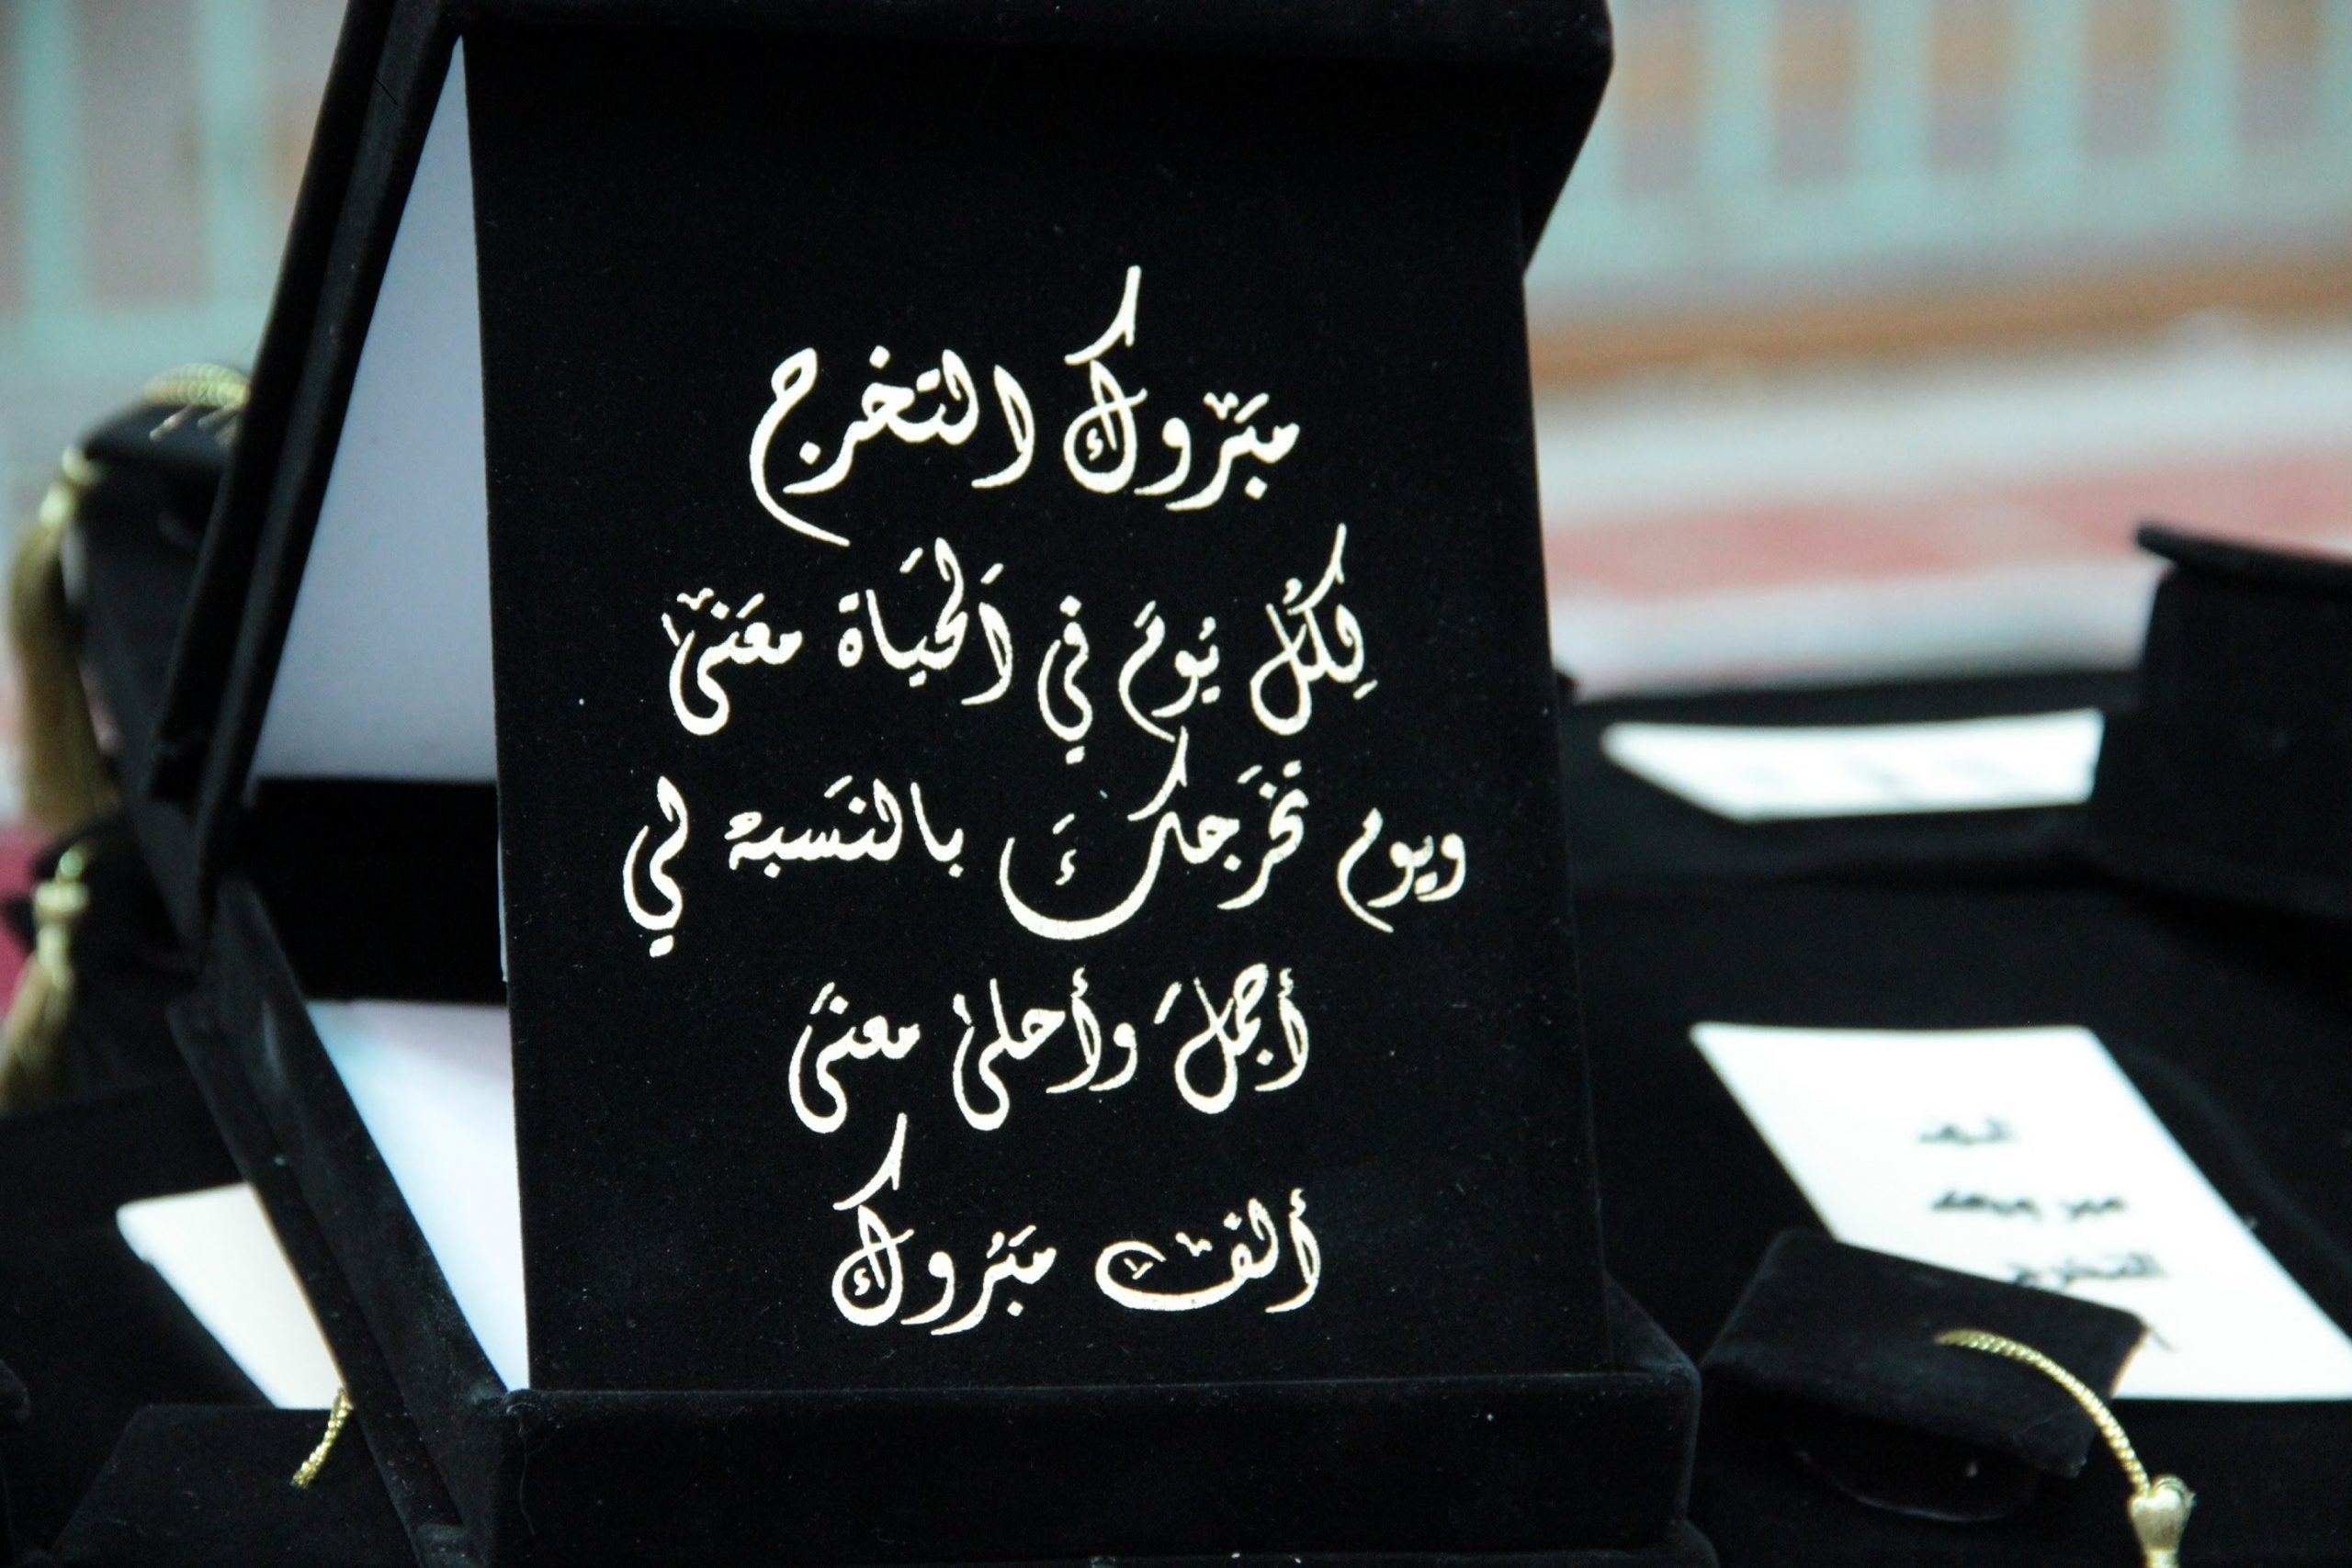 مبَرْوك التخرج
لِكُل يُومَ في اَلحَيَاة معَنىْ
ويوم تَخَرجكَ بالنَسبه لي
أجملَ وأحلى معنىَ
ألفْ مبَرُوك
التخرج